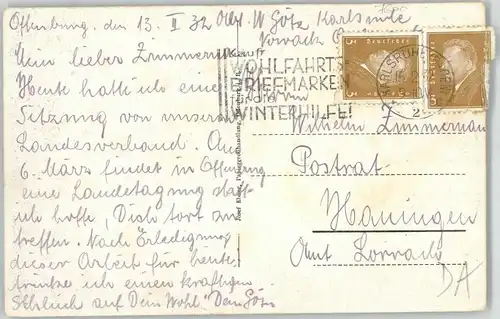 Offenburg, den 13. II 32 Abs. W Götz Karlsruhe
Mein lieber Zimmermann
Heute hatte ich eine
Sitzung von unserem
Landesverband. Am
6. März findet in Offenburg
eine Landestagung statt
ich hoffe, Dich dort zu
treffen. Nach Erledigung
dieser Arbeit für heute
trinke ich einen kräftigen
Schluck auf Dein Wohl. Dein Götz
Kauft
WOHLFAHRTS
BRIEFMARKEN
WINTERHILFE!
KARLSRUHE
Wilhelm Zimmermann
Postrat
Hauingen
Amt Lörrach
DA